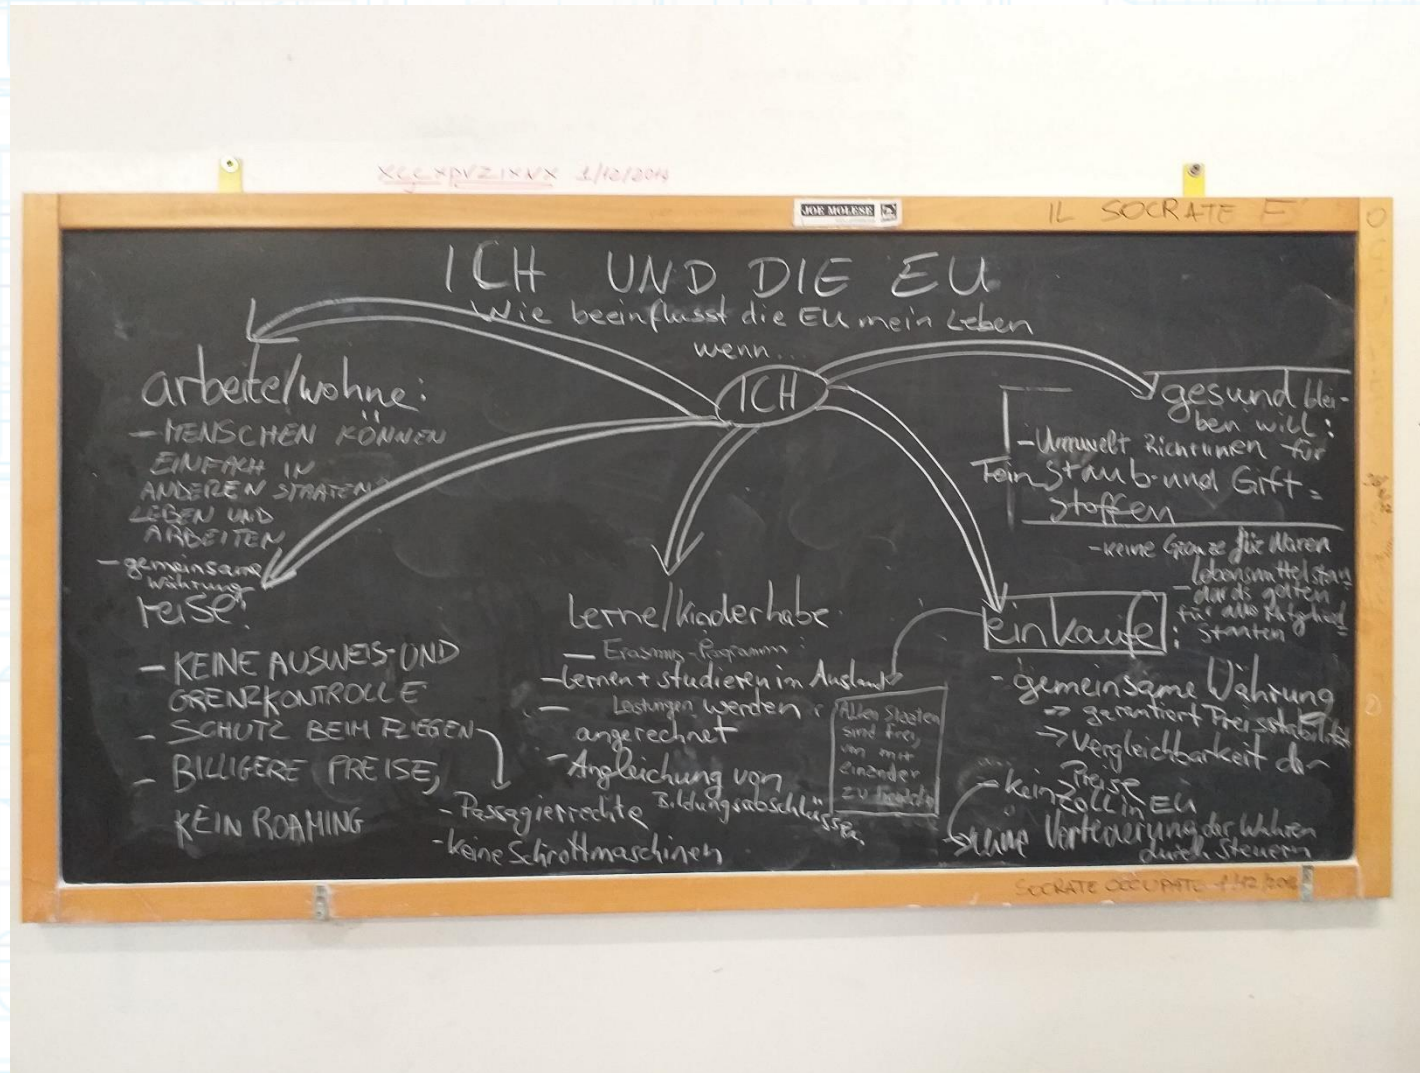 1/12/2014
JOE MOLESE
IL SOCRATE E'
ICH UND DIE EU
Wie beeinflusst die EU mein Leben
wenn...
ICH
arbeite/wohne:
- MENSCHEN KÖNNEN
EINFACH IN
ANDEREN STAATEN
LEBEN UND
ARBEITEN
- gemeinsame
Währung
reise:
- KEINE AUSWEIS-UND
GRENZKONTROLLE
- SCHUTZ BEIM FLIEGEN
- BILLIGERE PREISE,
KEIN ROAMING
- Passagierrechte
- keine Schrottmaschinen
Lerne/kinderhabe:
- Erasmus-Programm
- Lernen + studieren im Ausland
- Leistungen werden
angerechnet
- Angleichung von
Bildungsabschlüssen
Allen Staaten
sind frei,
von mit
einander
zu
gesund blei-
ben will:
- Umwelt Richtlinien für
Feinstaub-und Gift=
stoffen
einkaufe:
- keine Grenze für Waren
- Lebensmittelstan
dards gelten
für alle Mitglied=
Staaten
- gemeinsame Währung
→ garantiert Preisstabilität
→ Vergleichbarkeit der
Preise
- kein Zoll in EU
→ keine Verteuerung der Wahren
durch Steuern
SOCRATE OCCUPATO 1/12/2014